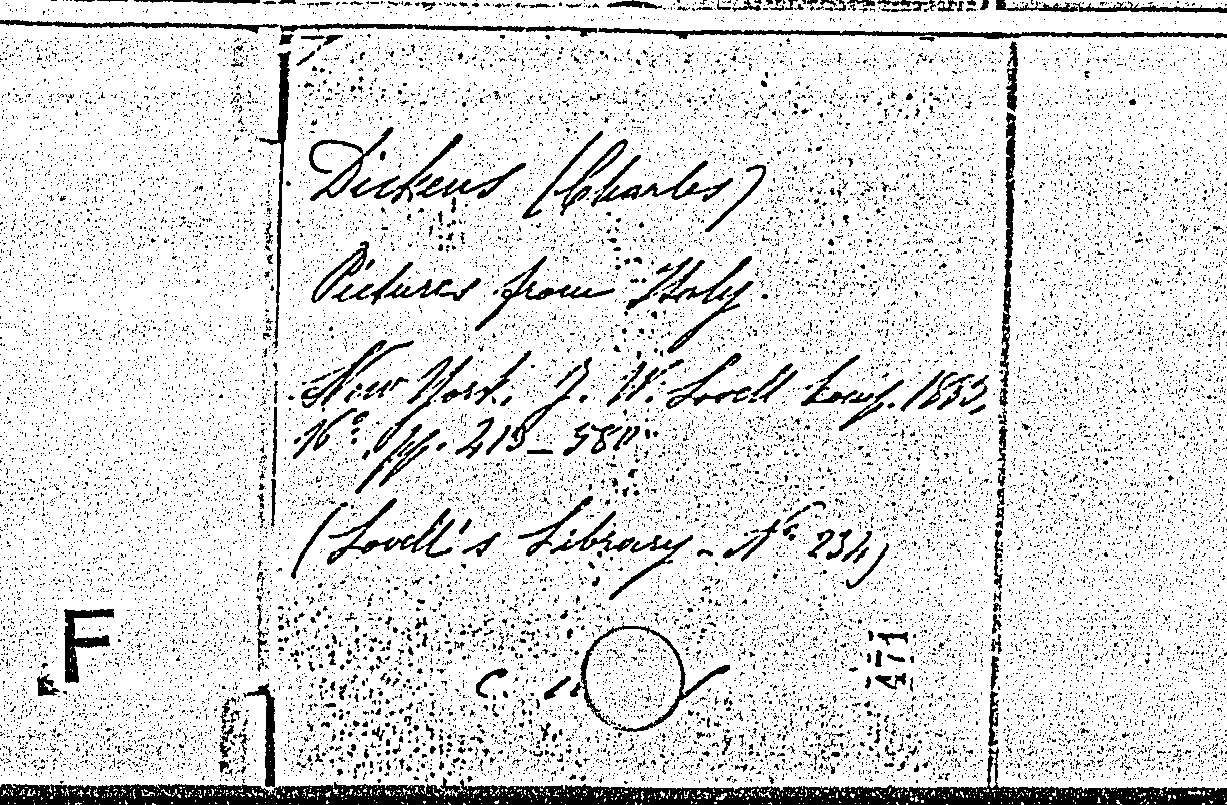 Dickens (Charles)
Pictures from Italy.
New York, J. W. Lovell Comp. 1883,
16°. pp. 419_580
(Lovell's Library - N° 234)
C.
471
F